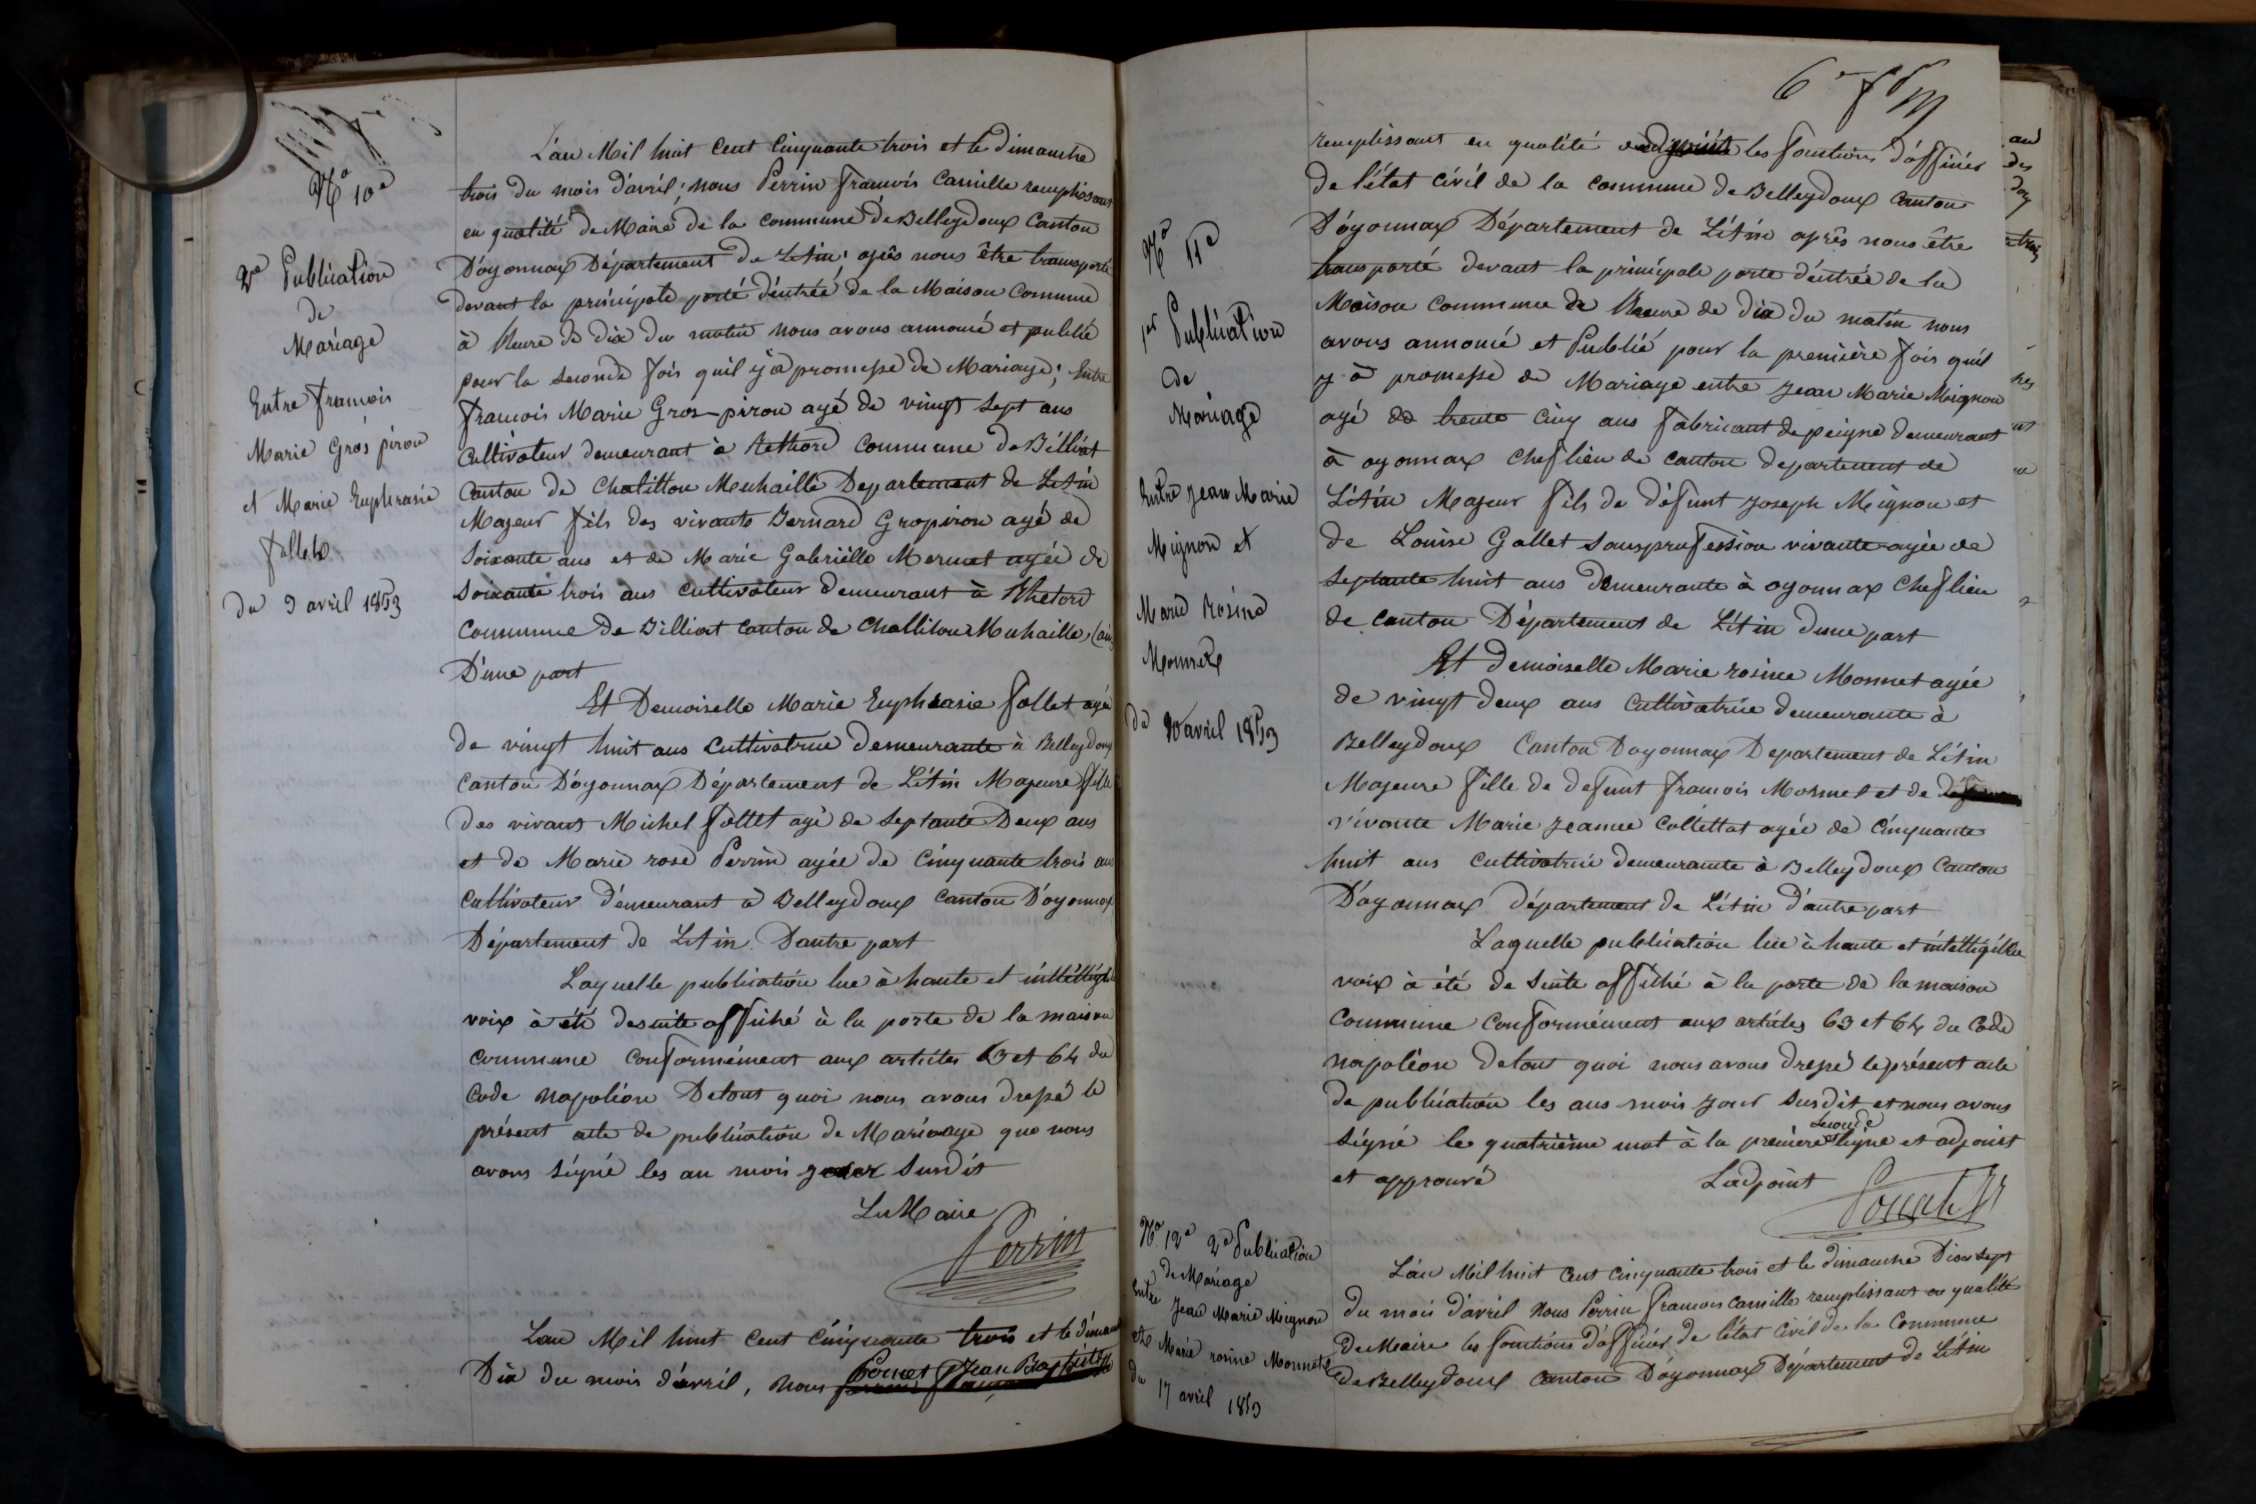 No 10e
2e Publication
de
Mariage
Entre francois
Marie Gros piron
et Marie Euphrasie
follet
du 3 avril 1853
L'an Mil huit cent Cinquante trois et le dimanche
trois du mois d'avril; nous Perrin francois Camille remplissant
en qualité de Maire de la commune de Belleydoux Canton
D'oyonnax Département de L'Ain; après nous être transporté
devant la principale porte d'entrée de la Maison Commune
à l'heure de dix du matin nous avons annoncé et publié
pour la seconde fois quil y a promesse de Mariage; Entre
francois Marie Gros-piron agé de vingt sept ans
Cultivateur demeurant à Rethord Commune de Billiat
Canton de Chatillon Michaille Departement de L'Ain
Majeur fils des vivants Bernard Grospiron agé de
Soixante ans et de Marie Gabriélle Mermet agée de
Soixante trois ans Cultivateur Demeurant à Rhetord
Commune de Billiat Canton de Challilon Michaille (ain)
D'une part
Et Demoiselle Marie Euphrasie follet agée
de vingt huit ans Cultivatrice demeurante à Belleydoux
Canton D'oyonnax Département de L'Ain Majeure fille
des vivants Michel follet agé de Septante Deux ans
et de Marie rose Perrin agée de Cinquante trois ans
Cultivateur demeurant à Belleydoux Canton D'oyonnax
Département de L'Ain. D'autre part
Laquelle publication lue à haute et intélligible
voix à été desuite affiché à la porte de la maison
commune Conformément aux articles 63 et 64 du
Code Napoléon Detout quoi nous avons dressé le
présent acte de publication de Mariaage que nous
avons signé les an mois jour Susdit
Le Maire
Perrin
Lan Mil huit Cent Cinquante trois et le dimanche
Dix du mois d'avril, Nous Poncet Jean Baptiste
6e f
No 11e
1er Publication
de
Mariage
Entre Jean Marie
Mignon et
Marie Rosine
Monnet
du 10 avril 1853
remplissant en qualité d'adjoint les fonctions d'officier
de l'état Civil de la Commune de Belleydoux Canton
D'oyonnax Département de L'Ain après nous être
transporté devant la principale porte d'entrée de la
Maison Commune de l'heure de dix du matin nous
avons annoncé et Publié pour la première fois qu'il
y à promesse de Mariage entre Jean Marie Mignon
agé de trente cinq ans fabricant de peigne demeurant
à oyonnax Cheflieu de canton departement de
L'Ain Majeur fils de défunt Joseph Mignon et
de Louise Gallet sansprofession vivante agée de
Septante huit ans Demeurante à oyonnax Cheflieu
de canton Département de L'Ain d'une part
Et demoiselle Marie rosine Monnet agée
de vingt deux ans Cultivatrice demeurante à
Belleydoux Canton Doyonnax Departement de L'Ain
Majeure fille de defunt francois Monnet et de
vivante Marie Jeanne Collettat agée de Cinquante
huit ans Cultivatrice demeurante à Belleydoux Canton
D'oyonnax département de L'Ain d'autre part
Laquelle publication lue à haute et intelligible
voix à été de suite affiché à la porte de la maison
Commune Conformément aux articles 63 et 64 du Code
Napoléon detout quoi nous avons dressé le présent acte
de publication les ans mois jour Susdit et nous avons
signé le quatrième mot à la premiere et seconde ligne et adjoint
et approuvé
L'adjoint
Poncet
No. 12e 2e Publication
de Mariage
Entre Jean Marie Mignon
et Marie rosine Monnet
du 17 avril 1853
L'an Mil huit Cent Cinquante trois et le dimanche Dix sept
du mois d'avril Nous Perrin francois Camille remplissant en qualité
de Maire les fonctions d'officier de l'état Civil de la Commune
de Belleydoux Canton D'oyonnax Département de L'Ain